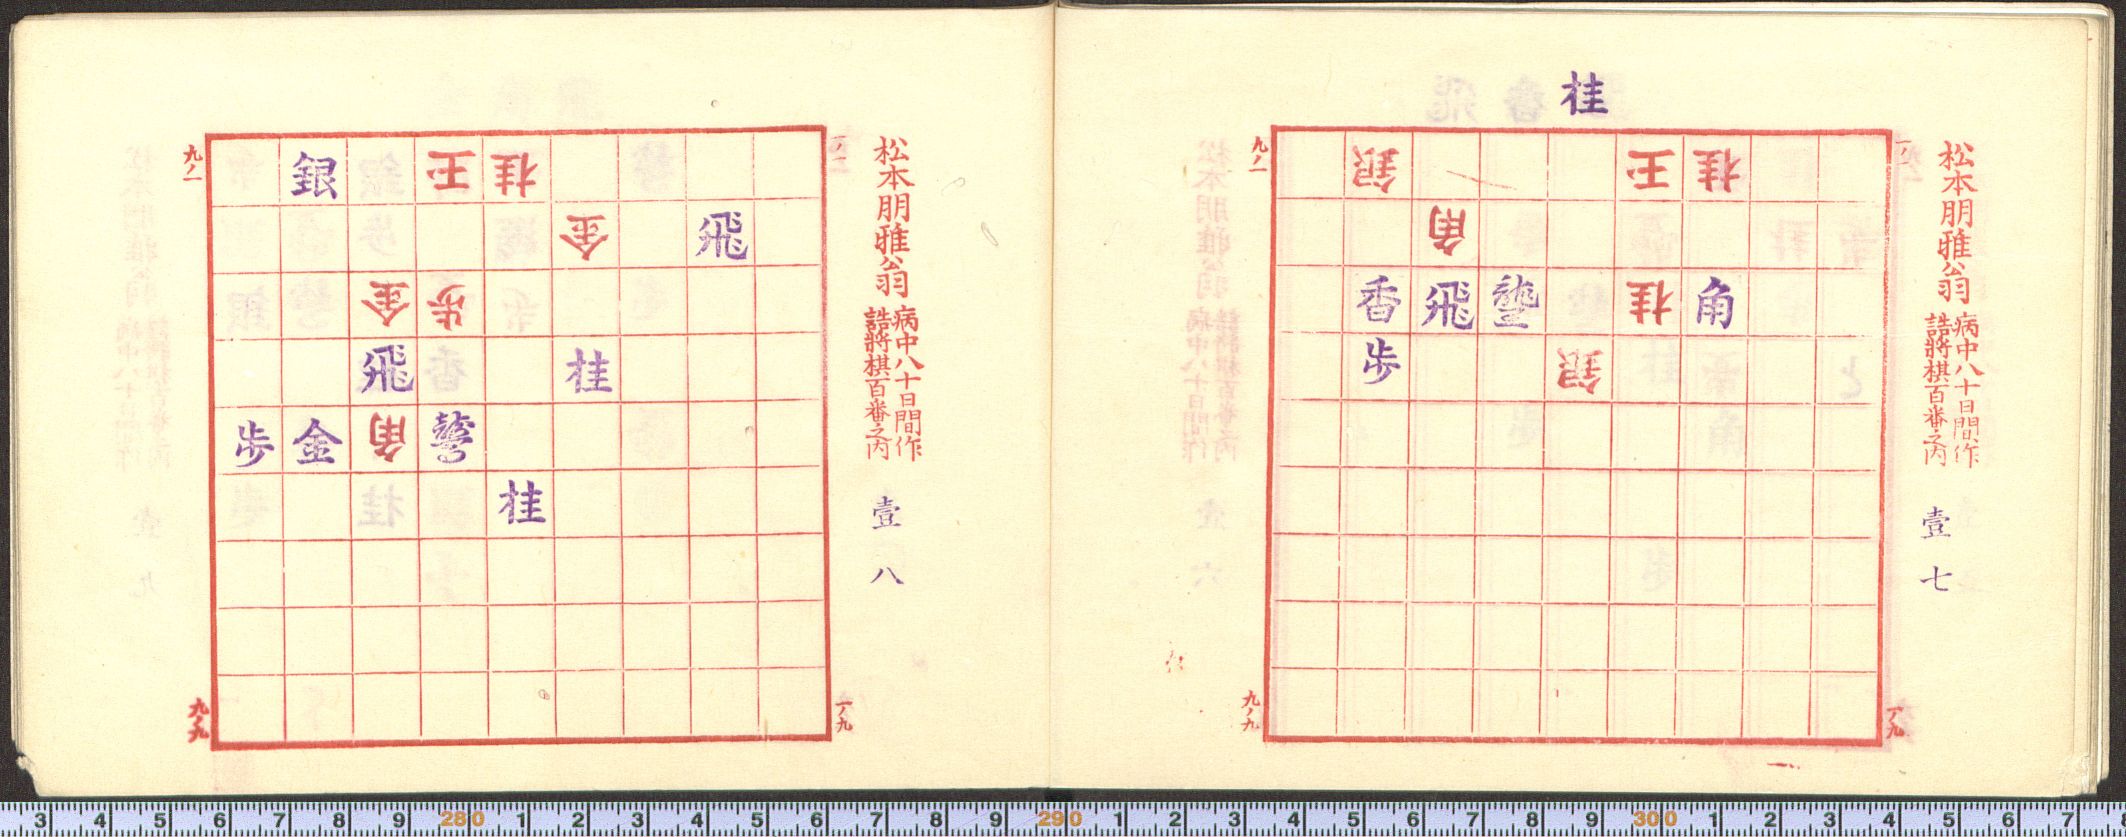 松本朋雅翁
病中八十日間作
詰將棋百番之內
壹七
桂
一ノ一
九ノ一
銀 王 桂
角
香 飛 龍 桂 角
歩 銀
九ノ九
一ノ九
松本朋雅翁
病中八十日間作
詰將棋百番之內
壹八
一ノ一
九ノ一
銀 王 桂
金 飛
金 歩
飛 桂
歩 金 角
桂
九ノ九
一ノ九
3 4 5 6 7 8 9 280 1 2 3 4 5 6 7 8 9 290 1 2 3 4 5 6 7 8 9 300 1 2 3 4 5 6 7